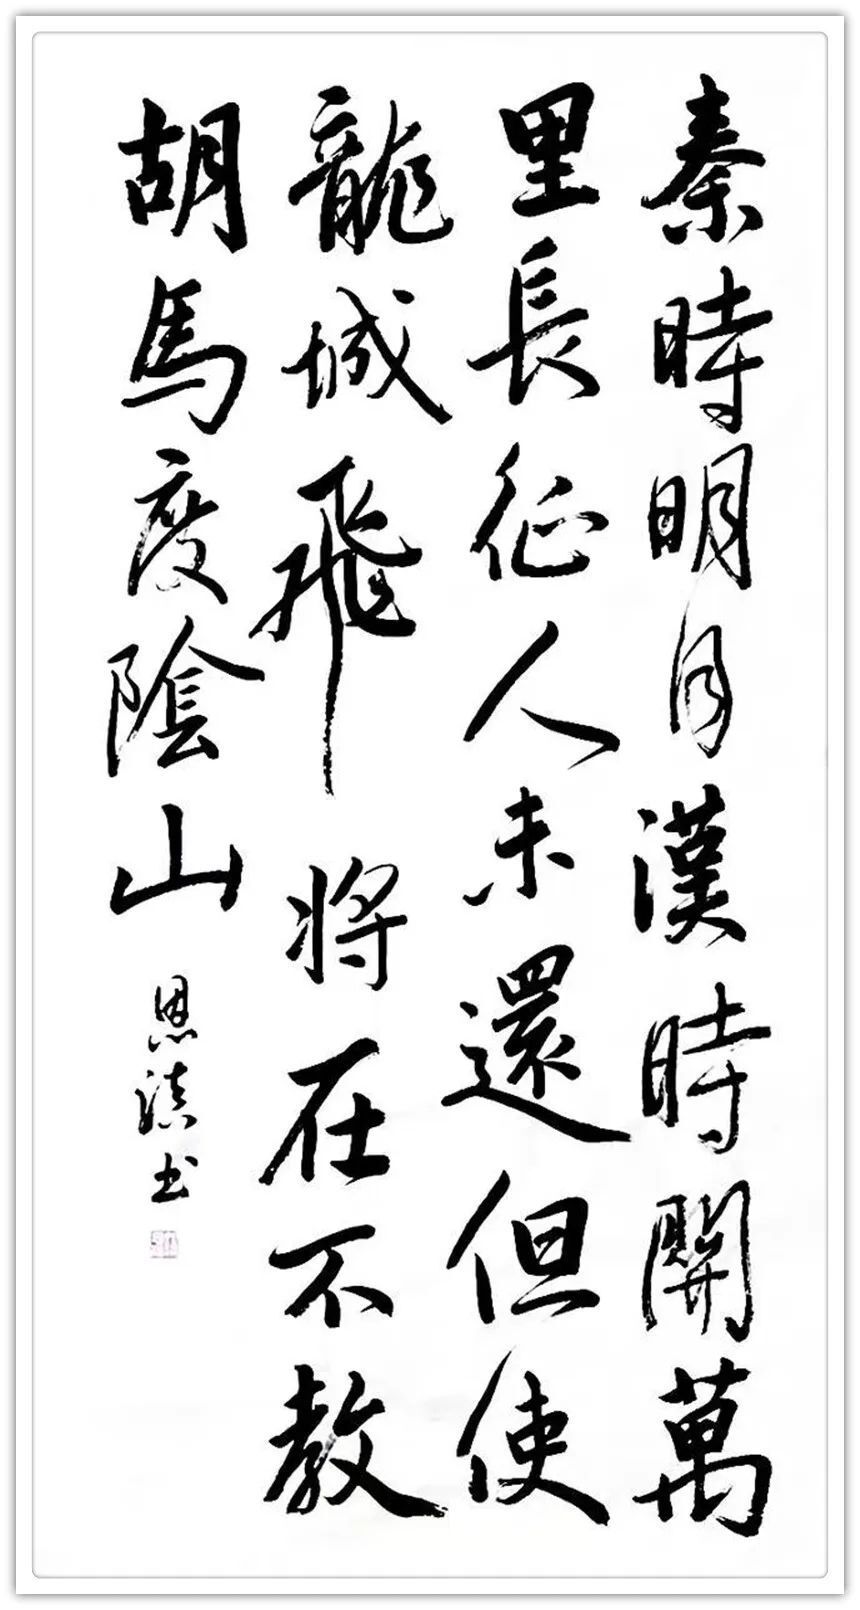 秦時明月漢時關萬
里長征人未還但使
龍城飛将在不教
胡馬度陰山
恩书